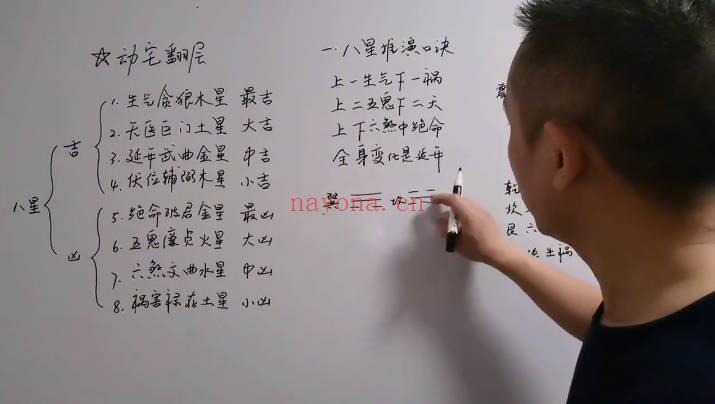 ☆动宅翻层
八星
吉
1. 生气贪狼木星 最吉
2. 天医巨门土星 大吉
3. 延年武曲金星 中吉
4. 伏位辅弼木星 小吉
凶
5. 绝命破君金星 最凶
6. 五鬼廉贞火星 大凶
7. 六煞文曲水星 中凶
8. 祸害禄存土星 小凶
一.八星推演口诀
上一生气下一祸
上二五鬼下二天
上下六煞中绝命
全身变化是延年
巽 ☴ 坎
nayona.cn
震
乾
坎
艮六
生祸